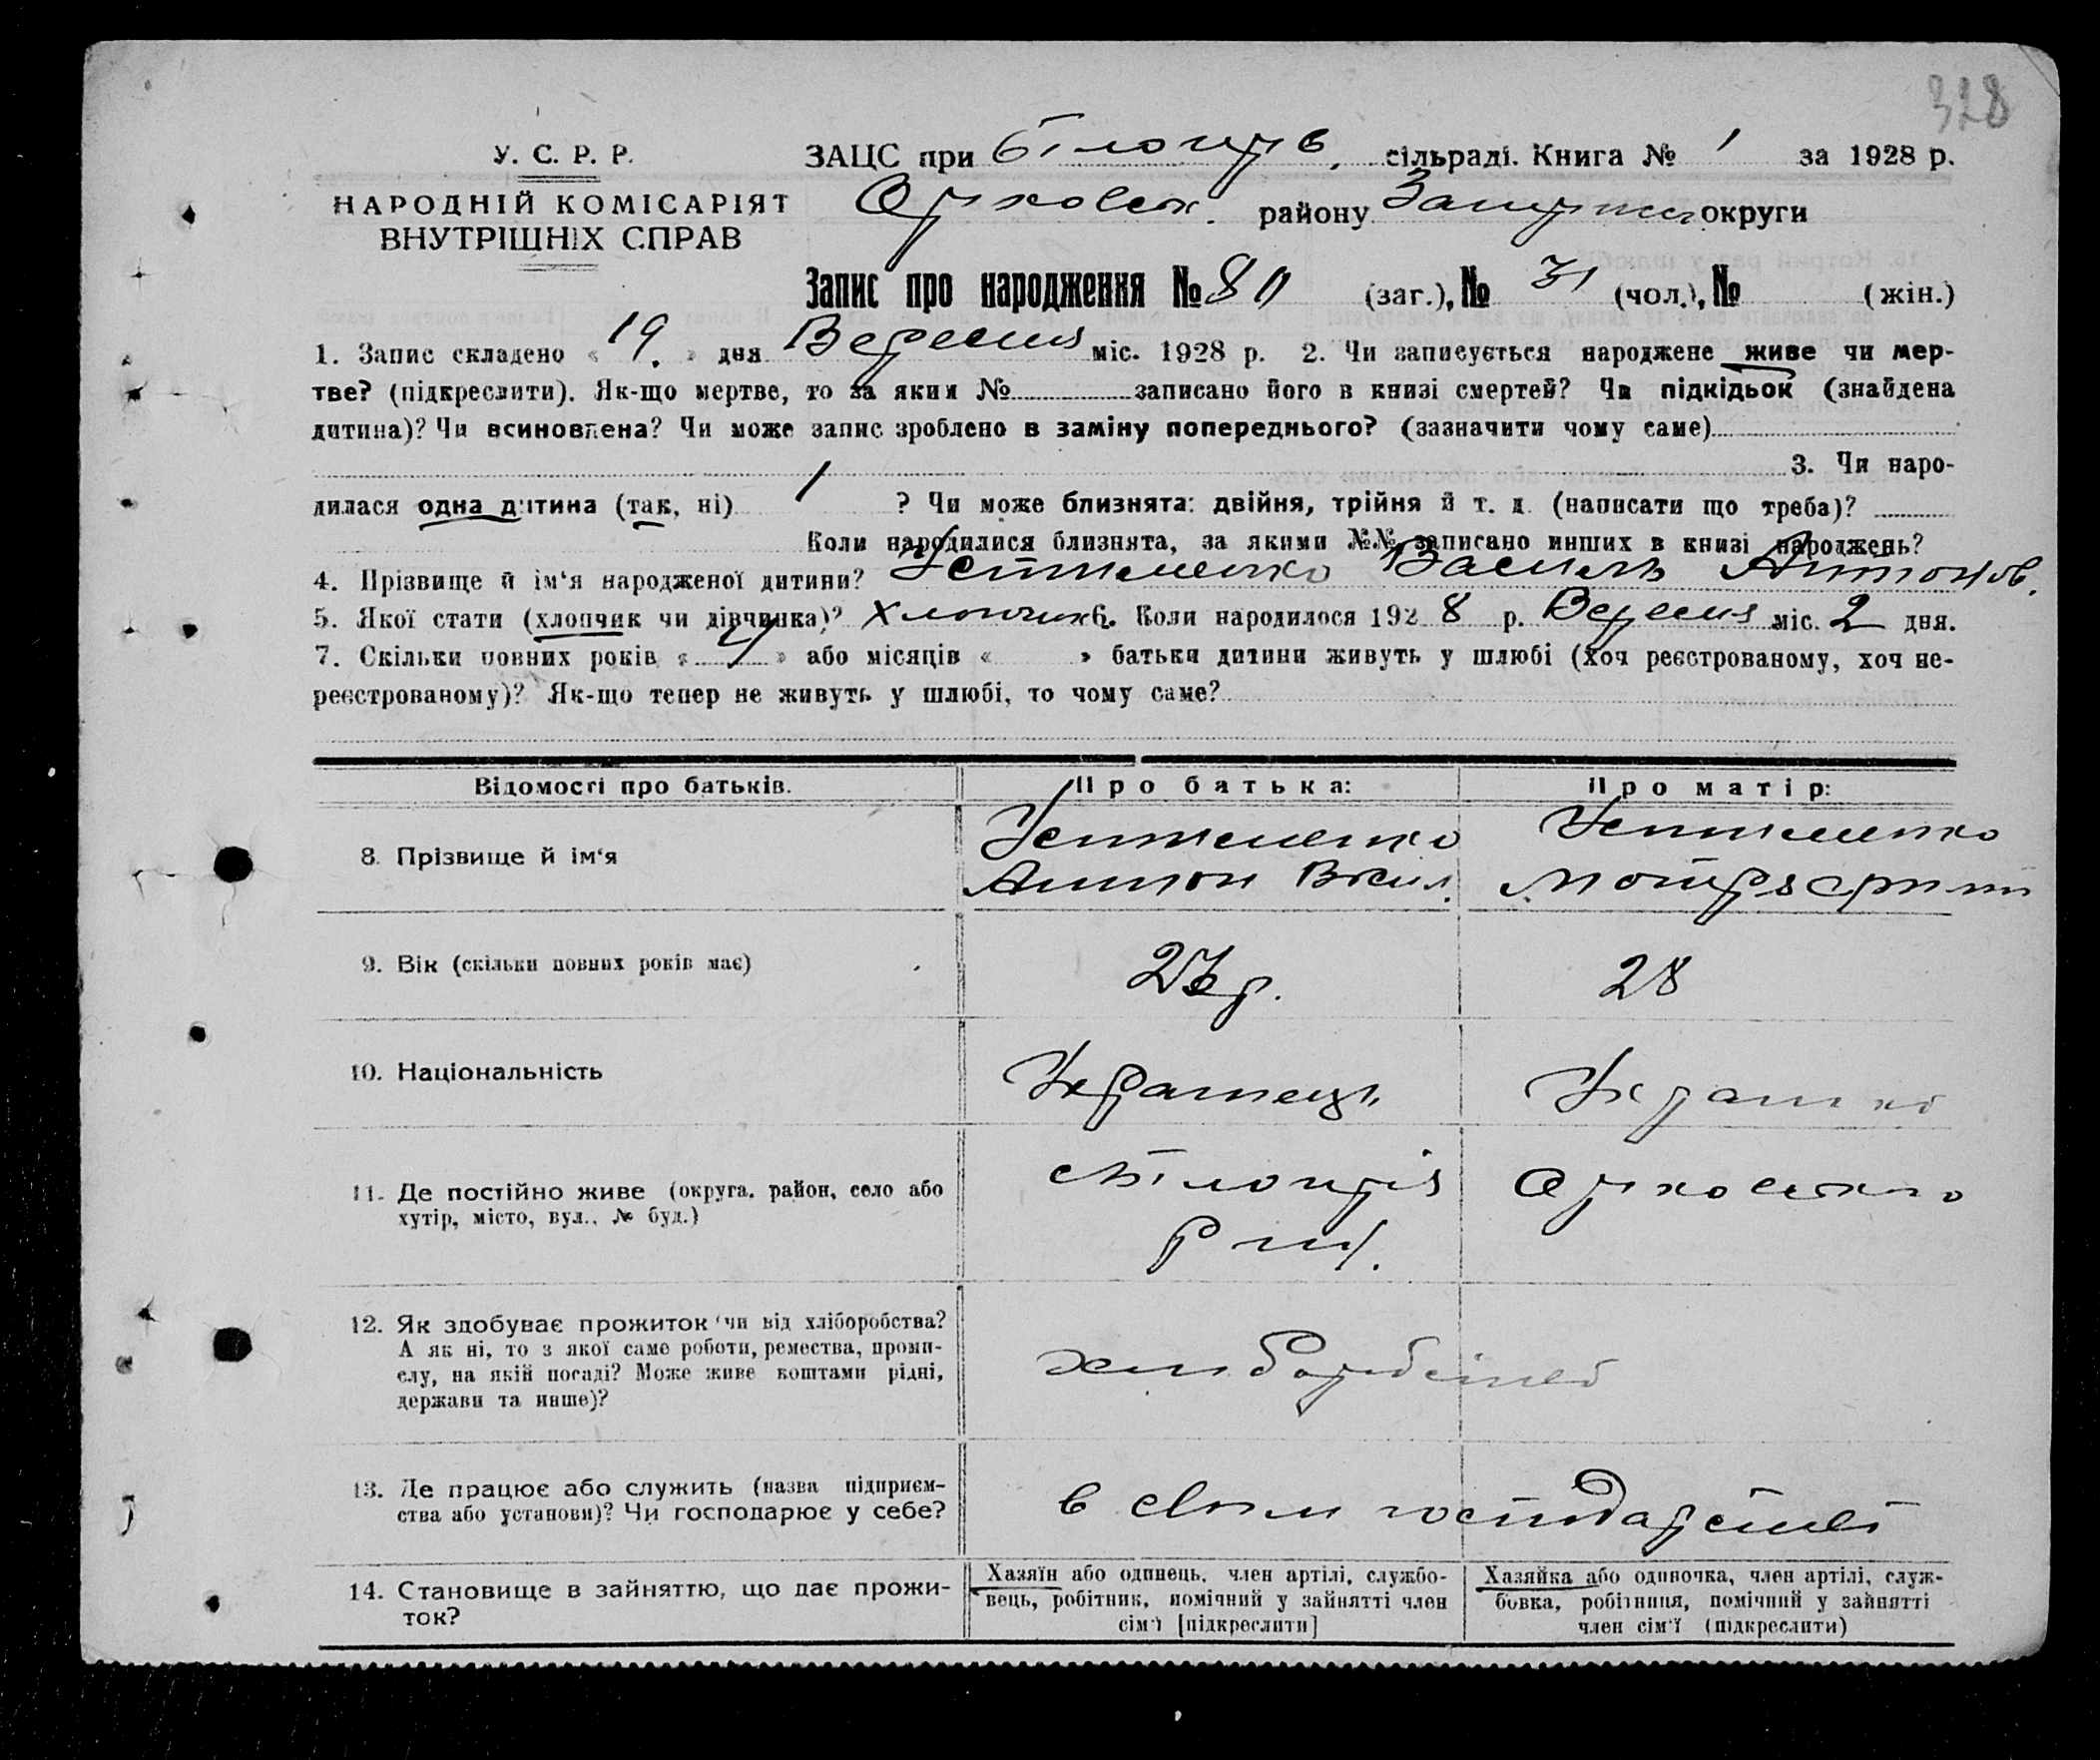 328
У. С. Р. Р.
НАРОДНІЙ КОМІСАРІЯТ
ВНУТРІШНІХ СПРАВ
ЗАЦС при сільраді. Книга № 1 за 1928 р.
району округи
Запис про народження № 80 (заг.), № 31 (чол.), № (жін.)
1. Запис складено « 19. » дня Вересня міс. 1928 р. 2. Чи записується народжене живе чи мер-
тве? (підкреслити). Як-що мертве, то за яким № записано його в книзі смертей? Чи підкідьок (знайдена
дитина)? Чи всиновлена? Чи може запис зроблено в заміну попереднього? (зазначити чому саме)
3. Чи наро-
дилася одна дитина (так, ні) 1 ? Чи може близнята: двійня, трійня й т. д. (написати що треба)?
Коли народилися близнята, за якими №№ записано инших в книзі народжень?
4. Прізвище й ім'я народженої дитини? Устименко Василь Антонов.
5. Якої стати (хлопчик чи дівчинка)? Хлопчик 6. Коли народилося 1928 р. Вересня міс. 2 дня.
7. Скільки повних років « » або місяців « » батьки дитини живуть у шлюбі (хоч реєстрованому, хоч не-
реєстрованому)? Як-що тепер не живуть у шлюбі, то чому саме?
Відомості про батьків. Про батька: Про матір:
8. Прізвище й ім'я
Устименко Устименко
Антон Васил.
9. Вік (скільки повних років має) 28
10. Національність Украінець
11. Де постійно живе (округа, район, село або
хутір, місто, вул., № буд.)
12. Як здобуває прожиток чи від хліборобства?
А як ні, то з якої саме роботи, ремества, проми-
слу, на якій посаді? Може живе коштами рідні,
держави та инше)?
13. Де працює або служить (назва підприєм-
ства або установи)? Чи господарює у себе?
в своїм господарстві
14. Становище в зайняттю, що дає прожи-
ток?
Хазяїн або одинець, член артілі, службо-
вець, робітник, помічний у зайнятті член
сім'ї [підкреслити]
Хазяйка або одиночка, член артілі, служ-
бовка, робітниця, помічний у зайнятті
член сім'ї (підкреслити)